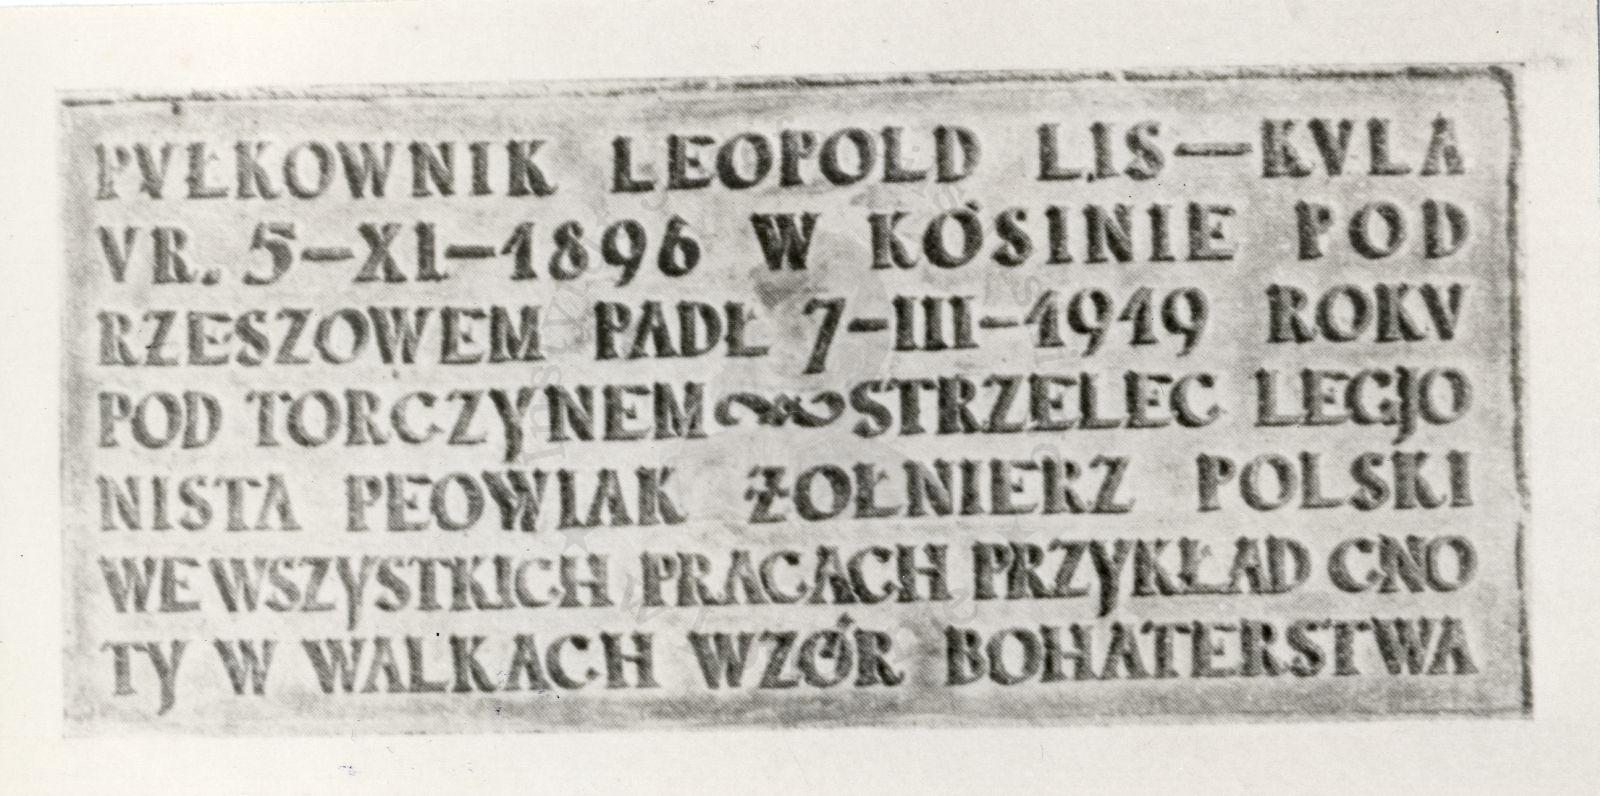 PVŁKOWNIK LEOPOLD LIS—KVLA
VR. 5—XI—1896 W KOSINIE POD
RZESZOWEM PADŁ 7—III—1919 ROKV
POD TORCZYNEM STRZELEC LEGJO
NISTA PEOWIAK ŻOŁNIERZ POLSKI
WE WSZYSTKICH PRACACH PRZYKŁAD CNO
TY W WALKACH WZÓR BOHATERSTWA